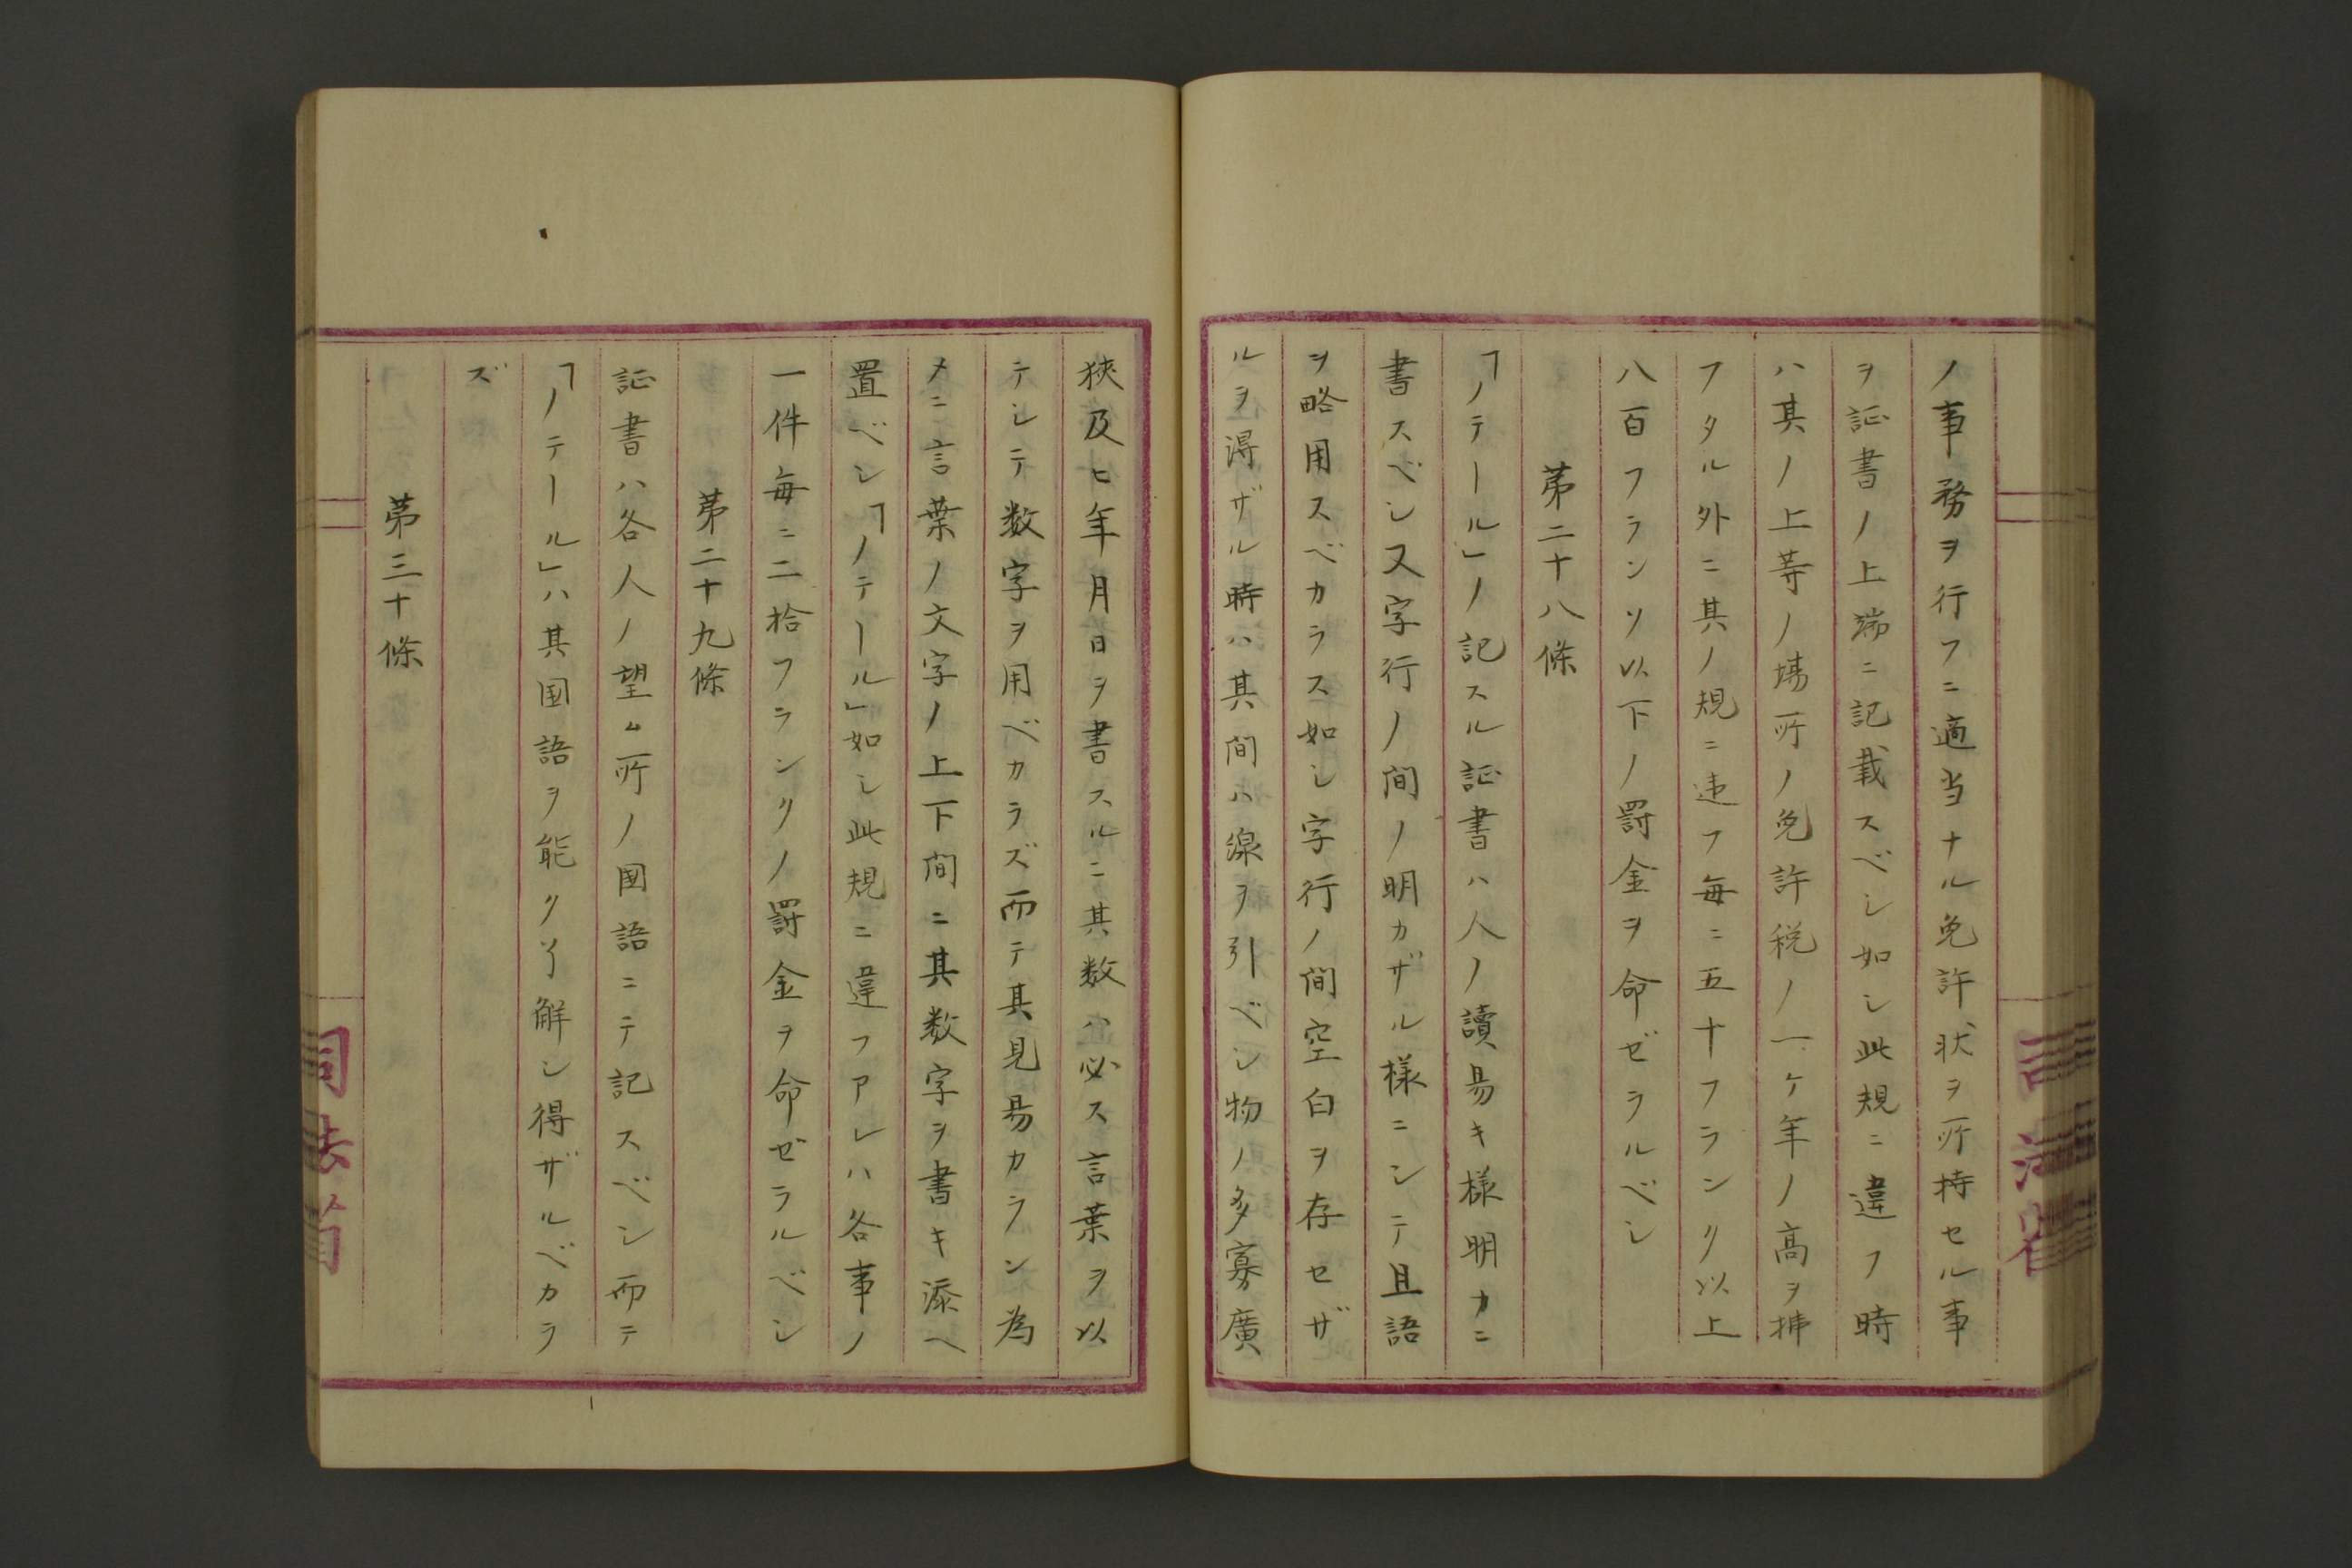 ノ事務ヲ行フニ適当ナル免許状ヲ所持セル事
ヲ証書ノ上端ニ記載スベシ如シ此規ニ違フ時
ハ其ノ上等ノ場所ノ免許税ノ一ケ年ノ高ヲ拂
フタル外ニ其ノ規ニ違フ毎ニ五十フランク以上
八百フランソ以下ノ罰金ヲ命ゼラルベシ
第二十八條
「ノテール」ノ記スル証書ハ人ノ讀易キ様明カニ
書スベシ又字行ノ間ノ明カザル様ニシテ且語
ヲ略用スベカラス如シ字行ノ間空白ヲ存セザ
ルヲ得ザル時ハ其間ハ線ヲ引ベシ物ノ多寡廣
狹及ヒ年月日ヲ書スルニ其数ハ必ス言葉ヲ以
テシテ数字ヲ用ベカラズ而テ其見易カラン為
メニ言葉ノ文字ノ上下間ニ其数字ヲ書キ添ヘ
置ベシ「ノテール」如シ此規ニ違フアレハ各事ノ
一件毎ニ二拾フランクノ罰金ヲ命ゼラルベシ
第二十九條
証書ハ各人ノ望ム所ノ國語ニテ記スベシ而テ
「ノテール」ハ其国語ヲ能ク了解シ得ザルベカラ
ズ
第三十條
司法省